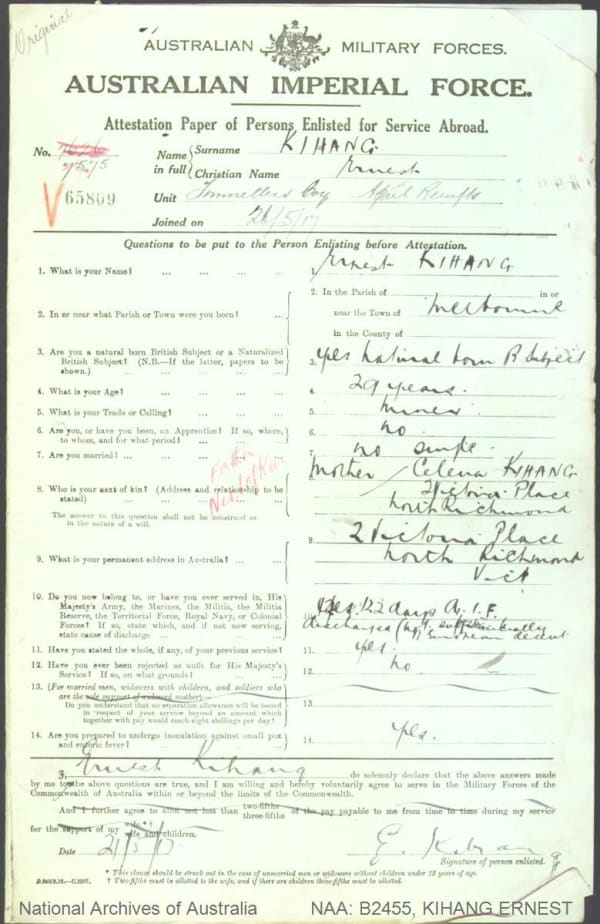 Original
AUSTRALIAN MILITARY FORCES.
AUSTRALIAN IMPERIAL FORCE.
Attestation Paper of Persons Enlisted for Service Abroad.
No. 7575
V 65809
Name in full { Surname KIHANG
Christian Name Ernest
Unit Tunnellers Coy April Reinfts
Joined on 21/5/17
Questions to be put to the Person Enlisting before Attestation.
1. What is your Name? ... ... ... ... 1. Ernest KIHANG
2. In or near what Parish or Town were you born? ... 2. In the Parish of in or
near the Town of Melbourne
in the County of
3. Are you a natural born British Subject or a Naturalized
British Subject? (N.B.—If the latter, papers to be
shown.) ... ... ... ... 3. yes natural born B Subject
4. What is your Age? ... ... ... ... 4. 29 years.
5. What is your Trade or Calling? ... ... ... 5. miner.
6. Are you, or have you been, an Apprentice? If so, where,
to whom, and for what period? ... ... ... 6. no.
7. Are you married? ... ... ... ... 7. no single.
Father
Next of Kin
8. Who is your next of kin? (Address and relationship to be
stated) ... ... ... ...
The answer to this question shall not be construed as
in the nature of a will.
mother Celena KIHANG
2 Victoria Place
North Richmond
9. What is your permanent address in Australia? ... ... 9. 2 Victoria Place
North Richmond
Vict
10. Do you now belong to, or have you ever served in, His
Majesty's Army, the Marines, the Militia, the Militia
Reserve, the Territorial Force, Royal Navy, or Colonial
Forces? If so, state which, and if not now serving,
state cause of discharge ... ... ...
10. yes. 122 days A.I.F.
discharged (not substantially
European decent
11. Have you stated the whole, if any, of your previous service? 11. yes.
12. Have you ever been rejected as unfit for His Majesty's
Service? If so, on what grounds? ... ... 12. no
13. (For married men, widowers with children, and soldiers who
are the sole support of widowed mother)—
Do you understand that no separation allowance will be issued
in respect of your service beyond an amount which
together with pay would reach eight shillings per day? 13.
14. Are you prepared to undergo inoculation against small pox
and enteric fever? ... ... ... ... 14. yes.
I, Ernest Kihang do solemnly declare that the above answers made
by me to the above questions are true, and I am willing and hereby voluntarily agree to serve in the Military Forces of the
Commonwealth of Australia within or beyond the limits of the Commonwealth.
And I further agree to allot not less than two-fifths three-fifths of the pay payable to me from time to time during my service
for the support of my wife* wife and children.†
Date 21/5/17 E. Kihang
Signature of person enlisted.
* This clause should be struck out in the case of unmarried men or widowers without children under 18 years of age.
† Two-fifths must be allotted to the wife, and if there are children three-fifths must be allotted.
National Archives of Australia NAA: B2455, KIHANG ERNEST